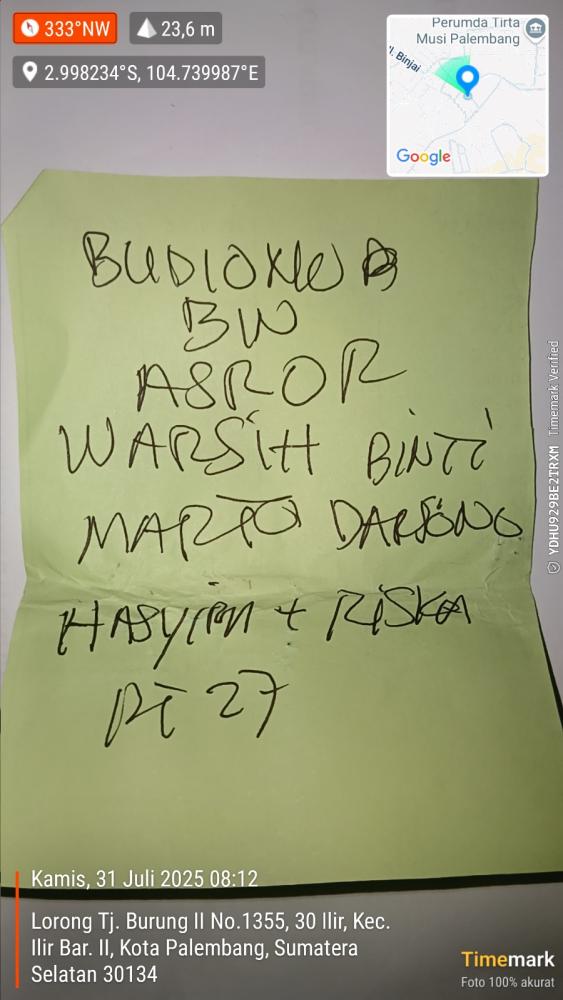 333°NW
23,6 m
2.998234°S, 104.739987°E
Perumda Tirta
Musi Palembang
Jl. Binjai
Google
BW
ASROR
WARSiH BiNTi
MARTO DARSONO
HASYIM + RiSKA
RT 27
YDHU929BE2TRXM Timemark Verified
Kamis, 31 Juli 2025 08:12
Lorong Tj. Burung II No.1355, 30 Ilir, Kec.
Ilir Bar. II, Kota Palembang, Sumatera
Selatan 30134
Timemark
Foto 100% akurat